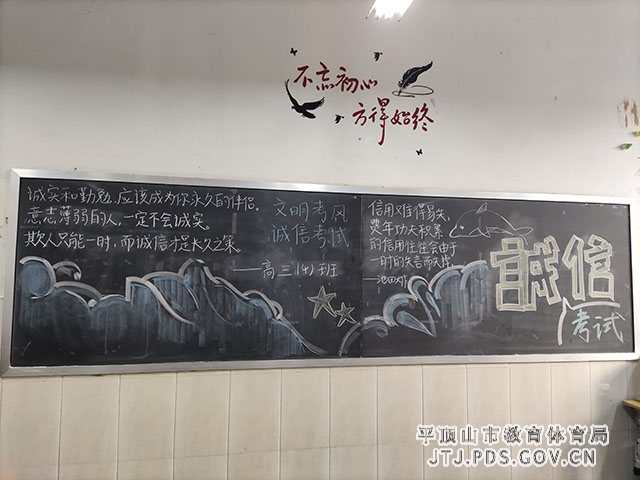 不忘初心
方得始终
诚实和勤勉,应该成为你永久的伴侣。
意志薄弱的人,一定不会诚实。
欺人只能一时,而诚信才是长久之策。
文明考风
诚信考试
——高三(4)班
信用难得易失,
费年功夫积累
的信用往往会由于
一时的失言而失掉
誠信
考试
平顶山市教育体育局
JTJ.PDS.GOV.CN